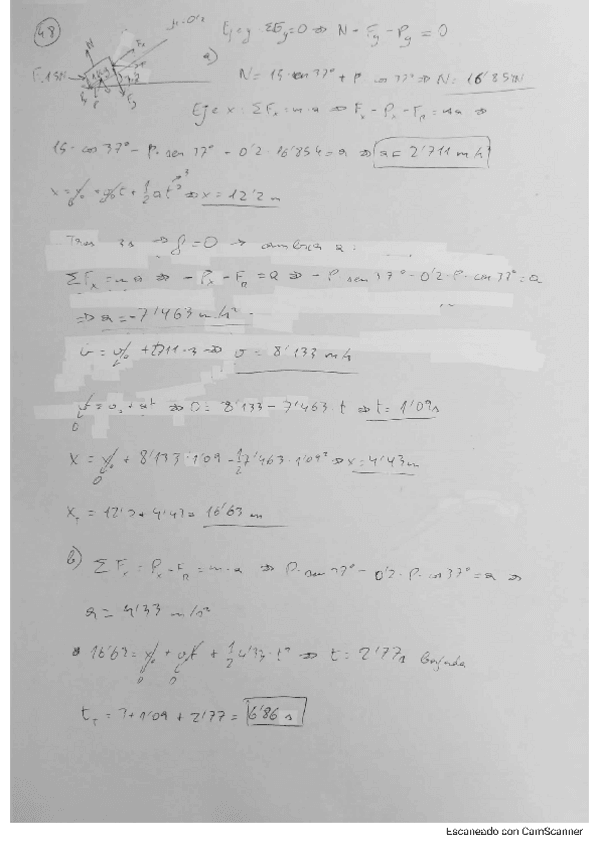 48
μ=0'2
Eje y ΣFy=0 ⇒ N - Fy - Py = 0
a)
F=15N
N= 15· sen 37° + P· cos 37° ⇒ N= 16'854N
Eje x: ΣFx=m·a ⇒ Fx-Px-FR=ma ⇒
15· cos 37° - P· sen 37° - 0'2·16'854=a ⇒ a= 2'711 m/s²
x=x₀+v₀t+½at² ⇒ x= 12'2m
Tras 3s → F=0 → cambia a:
ΣFx=ma ⇒ -Px-FR=a ⇒ -P sen 37° - 0'2·P· cos 37°=a
⇒ a=-7'463m/s²
v=v₀ + 2'711·3 ⇒ v= 8'133 m/s
v=v₀+at ⇒ 0= 8'133-7'463·t ⇒ t= 1'09s
0
x= x₀ + 8'133·1'09 - ½7'463·1'09² ⇒ x=4'43m
0
xT = 12'2+4'43= 16'63 m
b) ΣFx=Px-FR=m·a ⇒ P· sen 37° - 0'2·P· cos 37°=a ⇒
a= 4'33 m/s²
16'63=x₀ + v₀t + ½4'33·t² ⇒ t= 2'77s bajada
0 0
tT = 3+1'09+2'77= 6'86 s
Escaneado con CamScanner